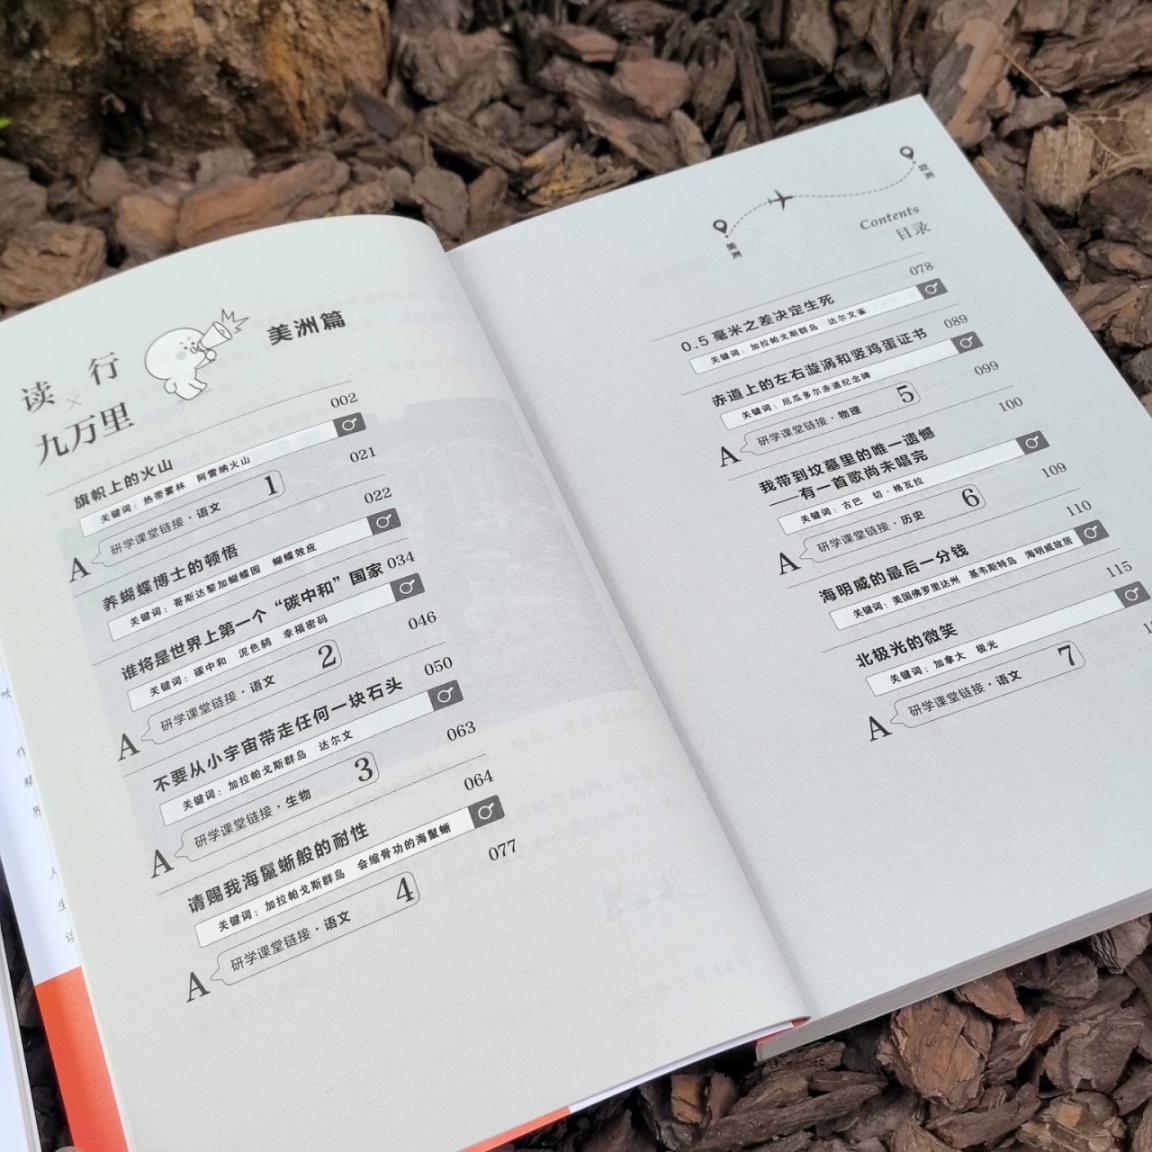 读 行
×
九万里
美洲篇
002
旗帜上的火山
关键词：热带雾林 阿雷纳火山
021
A 研学课堂链接·语文 1
022
养蝴蝶博士的顿悟
关键词：哥斯达黎加蝴蝶园 蝴蝶效应
034
谁将是世界上第一个“碳中和”国家
关键词：碳中和 泥色鸫 幸福密码
046
A 研学课堂链接·语文 2
050
不要从小宇宙带走任何一块石头
关键词：加拉帕戈斯群岛 达尔文
063
A 研学课堂链接·生物 3
064
请赐我海鬣蜥般的耐性
关键词：加拉帕戈斯群岛 会缩骨功的海鬣蜥
077
A 研学课堂链接·语文 4
美洲
Contents
目录
078
0.5毫米之差决定生死
关键词：加拉帕戈斯群岛 达尔文雀
089
赤道上的左右漩涡和竖鸡蛋证书
关键词：厄瓜多尔赤道纪念碑
099
A 研学课堂链接·物理 5
100
我带到坟墓里的唯一遗憾
——有一首歌尚未唱完
关键词：古巴 切·格瓦拉
109
A 研学课堂链接·历史 6
110
海明威的最后一分钱
关键词：美国佛罗里达州 基韦斯特岛 海明威故居
115
北极光的微笑
关键词：加拿大 极光
A 研学课堂链接·语文 7